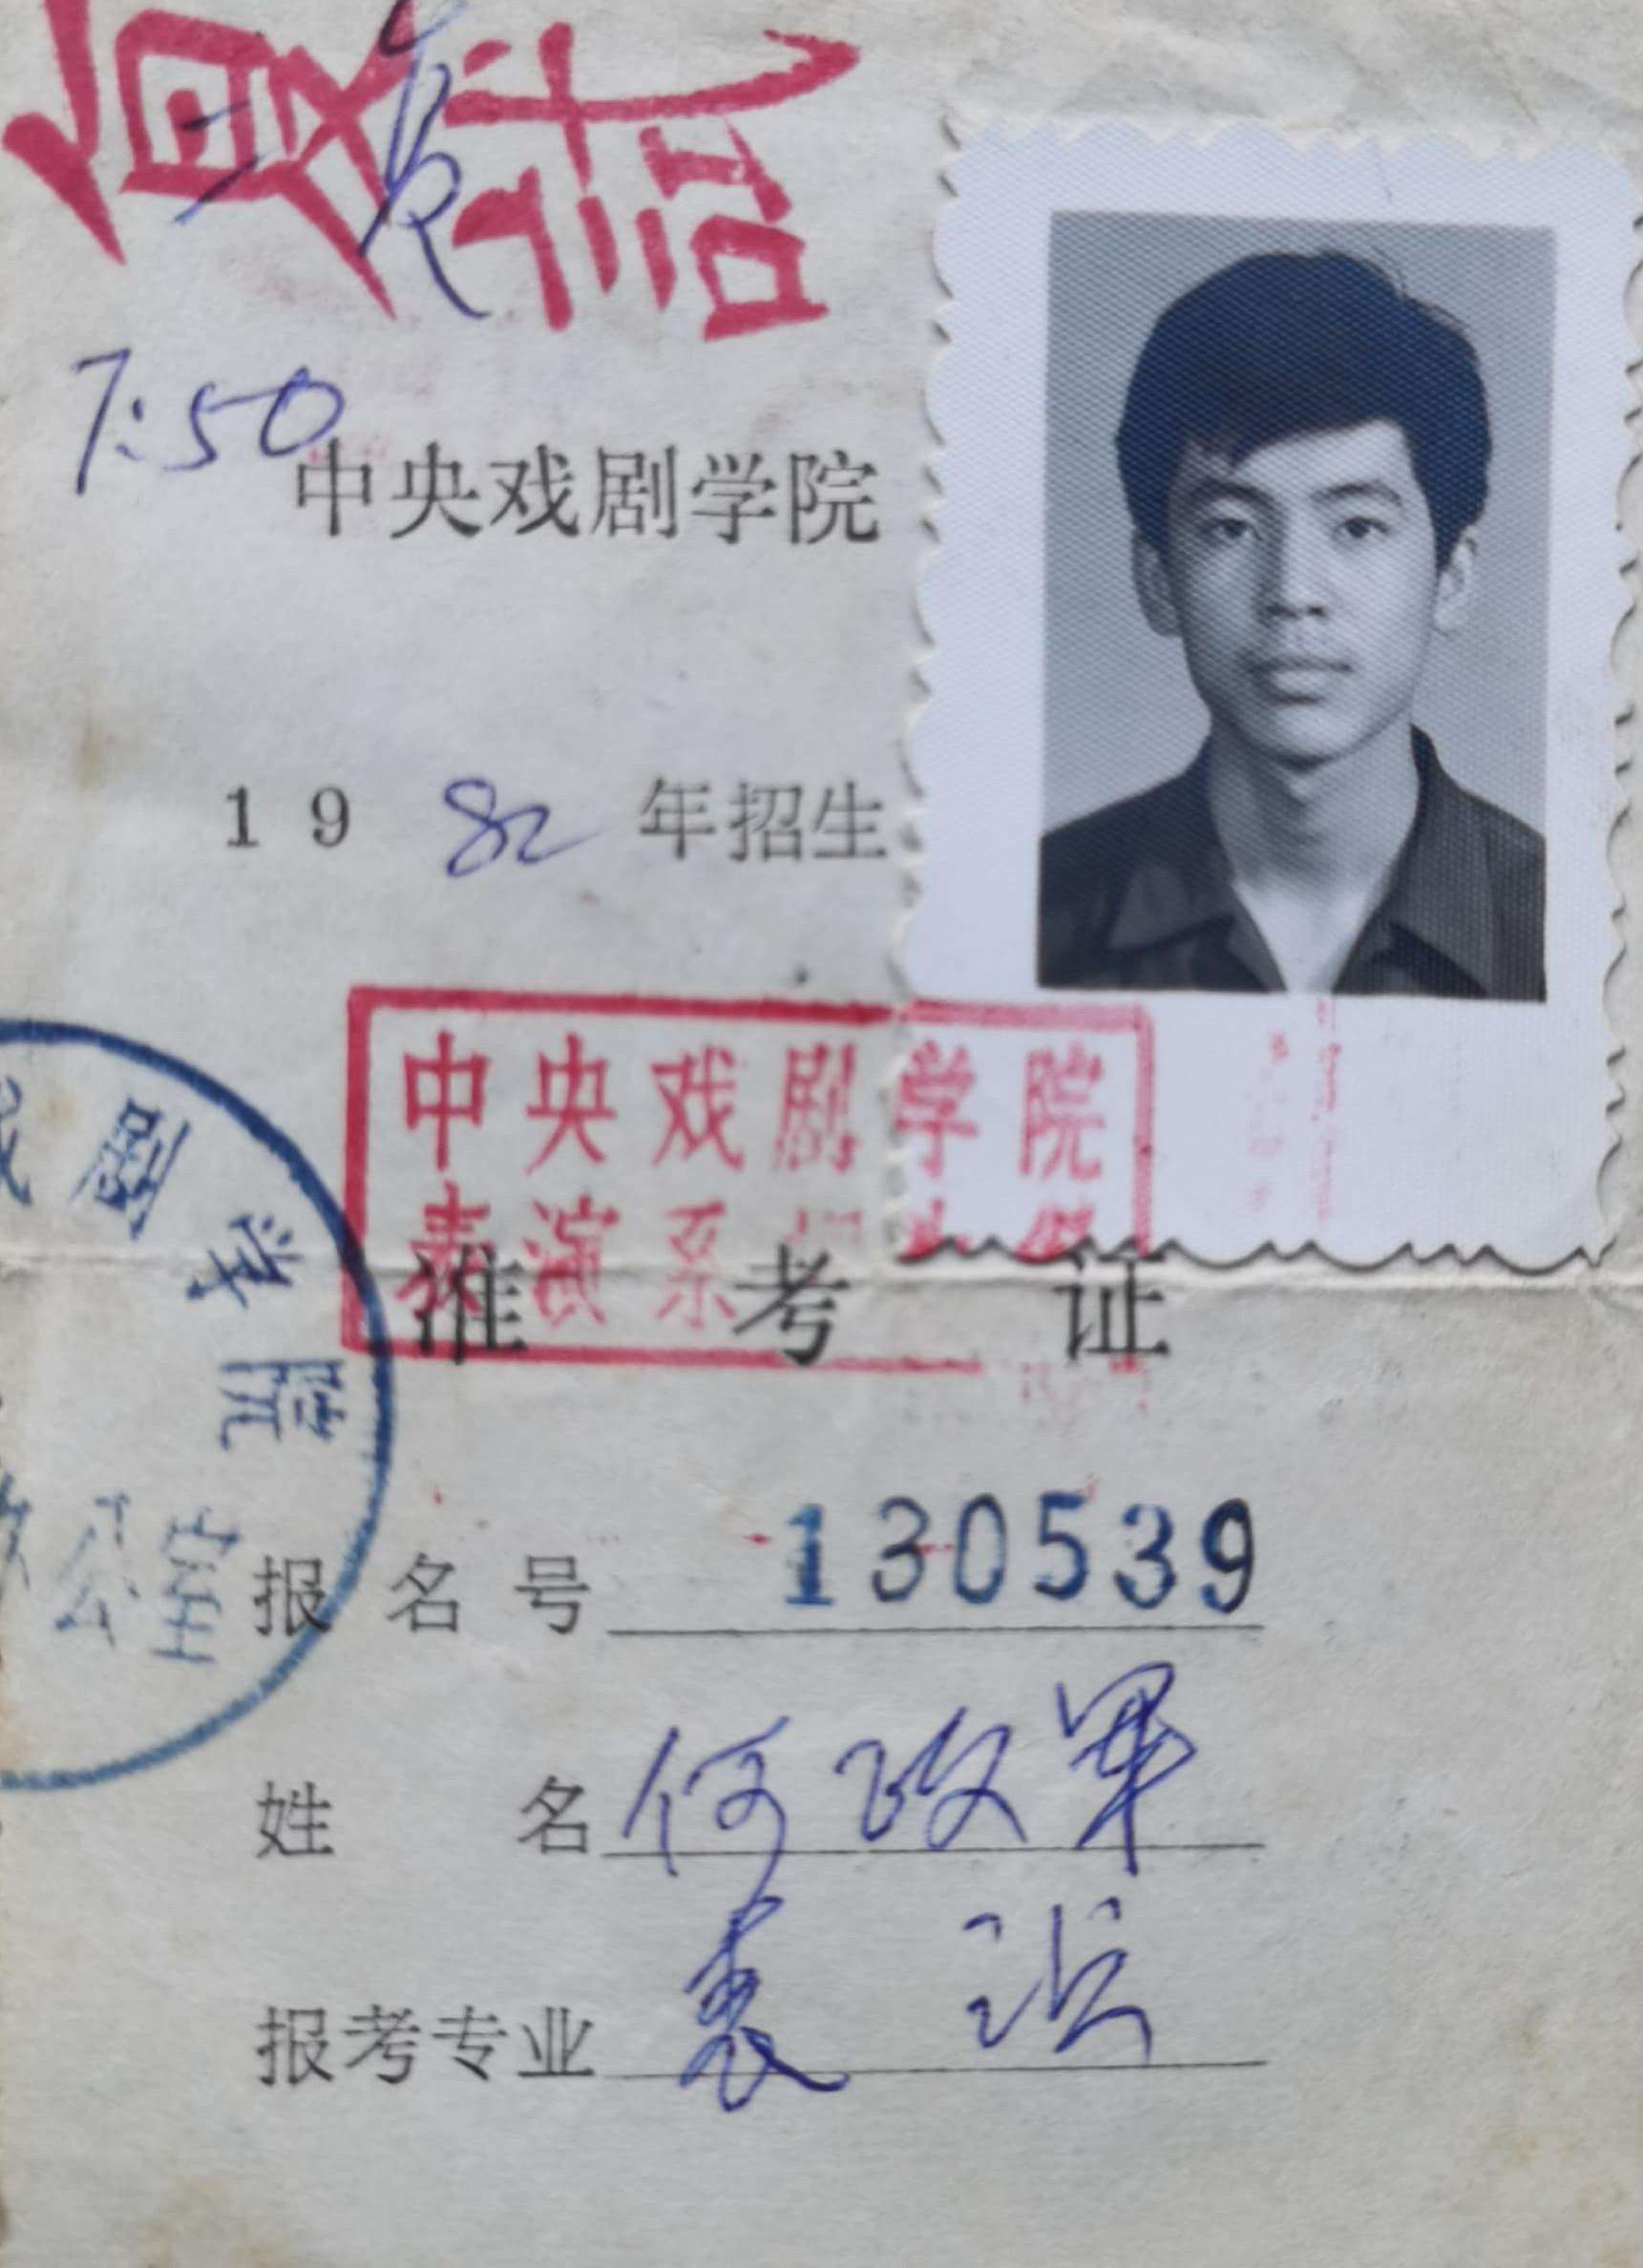 复试
7:50
中央戏剧学院
1982年招生
中央戏剧学院
表演系
准考证
剧学院
办公室
报名号 130539
姓名 何政军
报考专业 表演